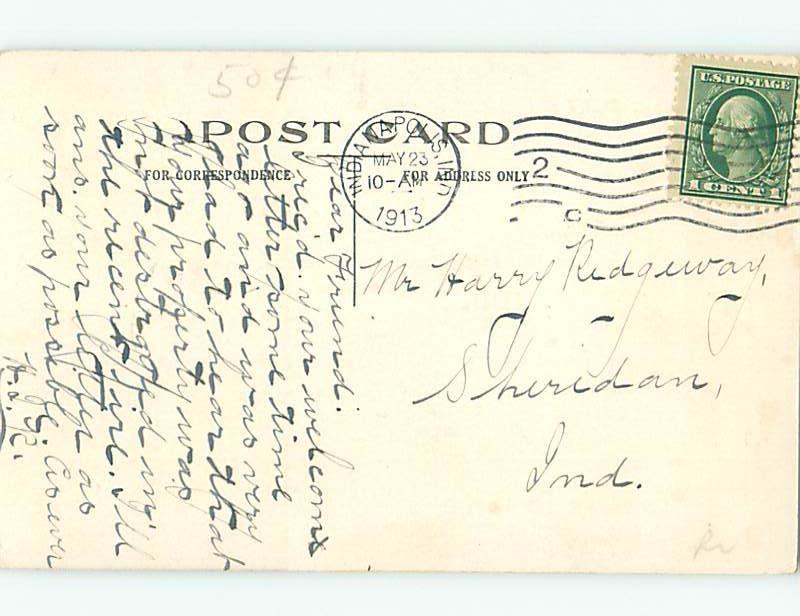 50¢
POST CARD
FOR CORRESPONDENCE
FOR ADDRESS ONLY
INDIANAPOLIS, IND
MAY 23
10-AM
1913
2
C
U.S. POSTAGE
1 CENT 1
Mr Harry Ridgeway,
Sheridan,
Ind.
Dear Friend:
Rec'd. your welcome
letter some time
ago and was very
glad to hear that
your property was
not destroyed in
the recent fire. I'll
ans. your letter as
soon as possible. As ever
H. G. R.